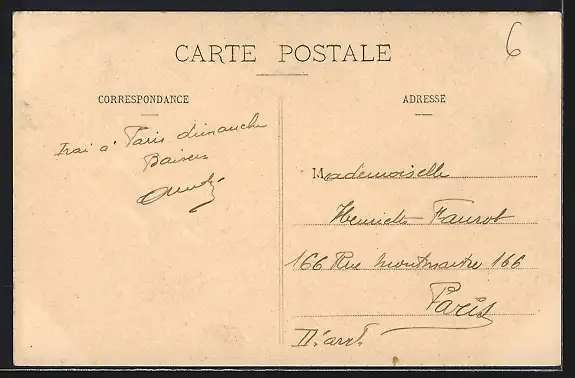 6
CARTE POSTALE
CORRESPONDANCE
Irai à Paris dimanche
Baisers
André
ADRESSE
Mademoiselle
Henriette Faurot
166 Rue Montmartre 166
Paris
II. arrt.